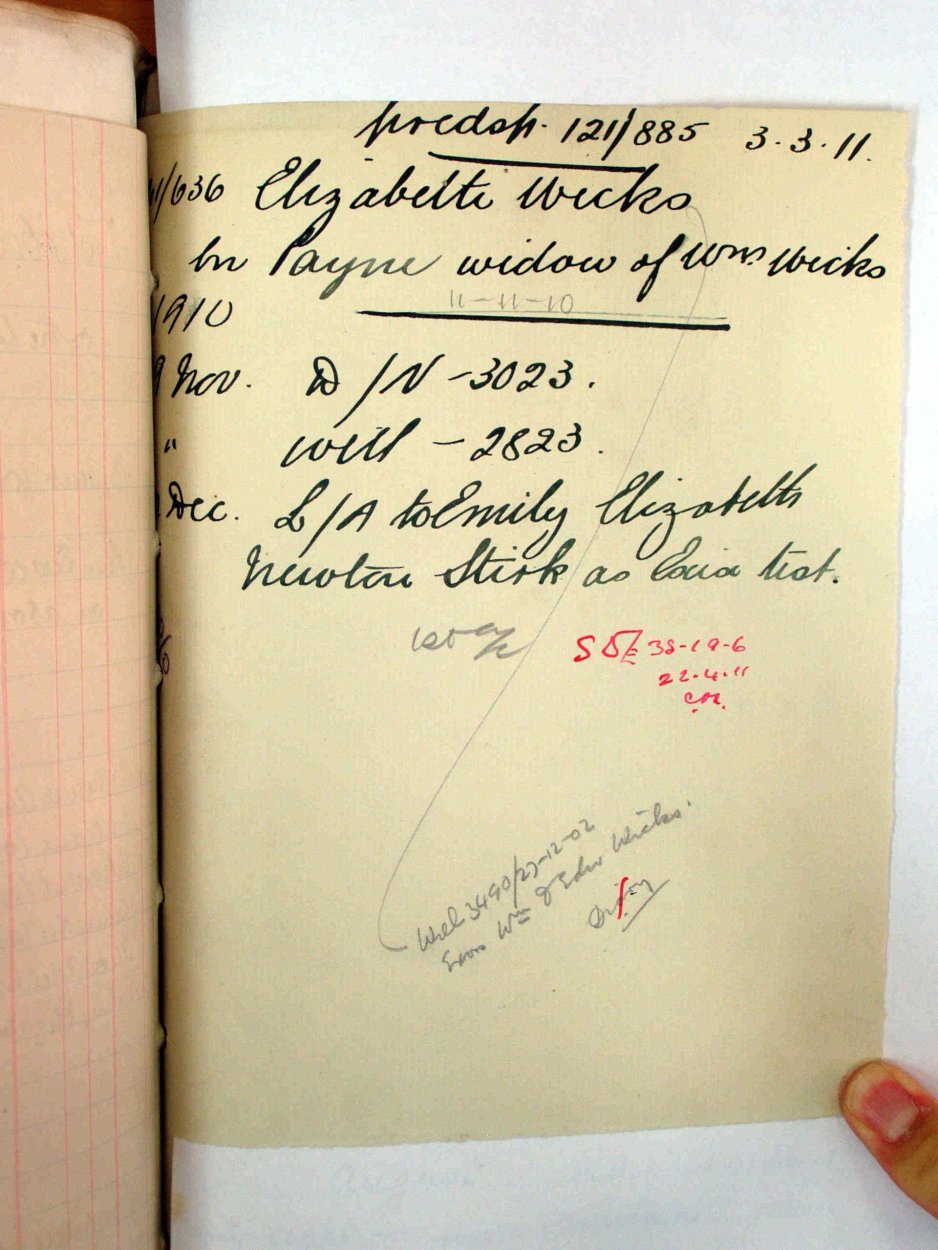 predsh. 121/885 3.3.11.
1/636 Elizabeth Wicks
bn Payne widow of Wm Wicks
11-11-10
1910
9 Nov. D/N - 3023.
" Will - 2823.
Dec. L/A to Emily Elizabeth
Newton Stirk as Exix test.
38-19-6
22.4.11
Will 3490/27-12-02
Exors Wm & Edw Wicks.